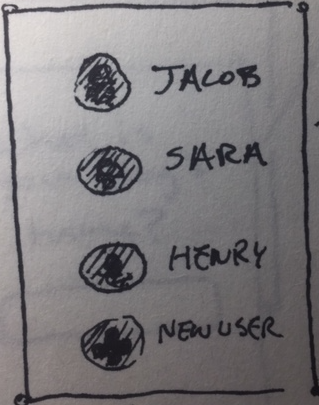 JACOB
SARA
HENRY
NEW USER